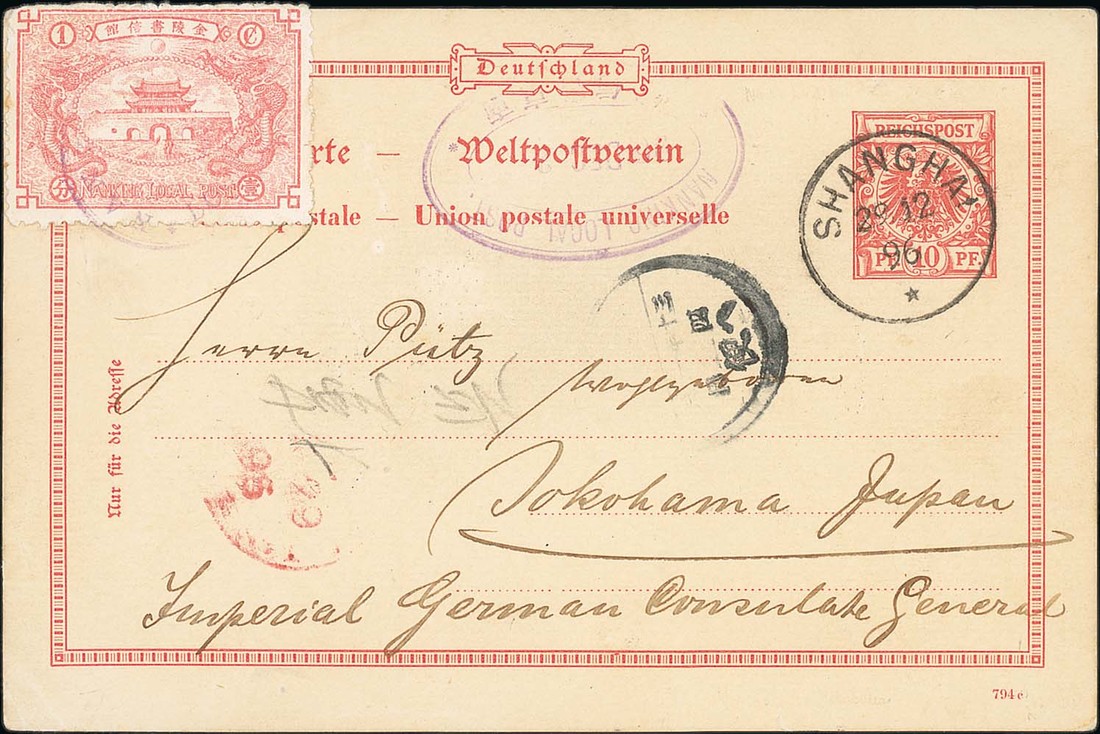 館信書陵金
1 ₵
分 NANKING LOCAL POST 壹
Deutschland
rte — Weltpostverein
stale — Union postale universelle
NANKING LOCAL POST
REICHSPOST
10 PF.
SHANGHAI
29 12
96
Herrn Pütz
Wohlgeboren
Yokohama Japan
Imperial German Consulate General
Nur für die Adresse
96
29
794 e